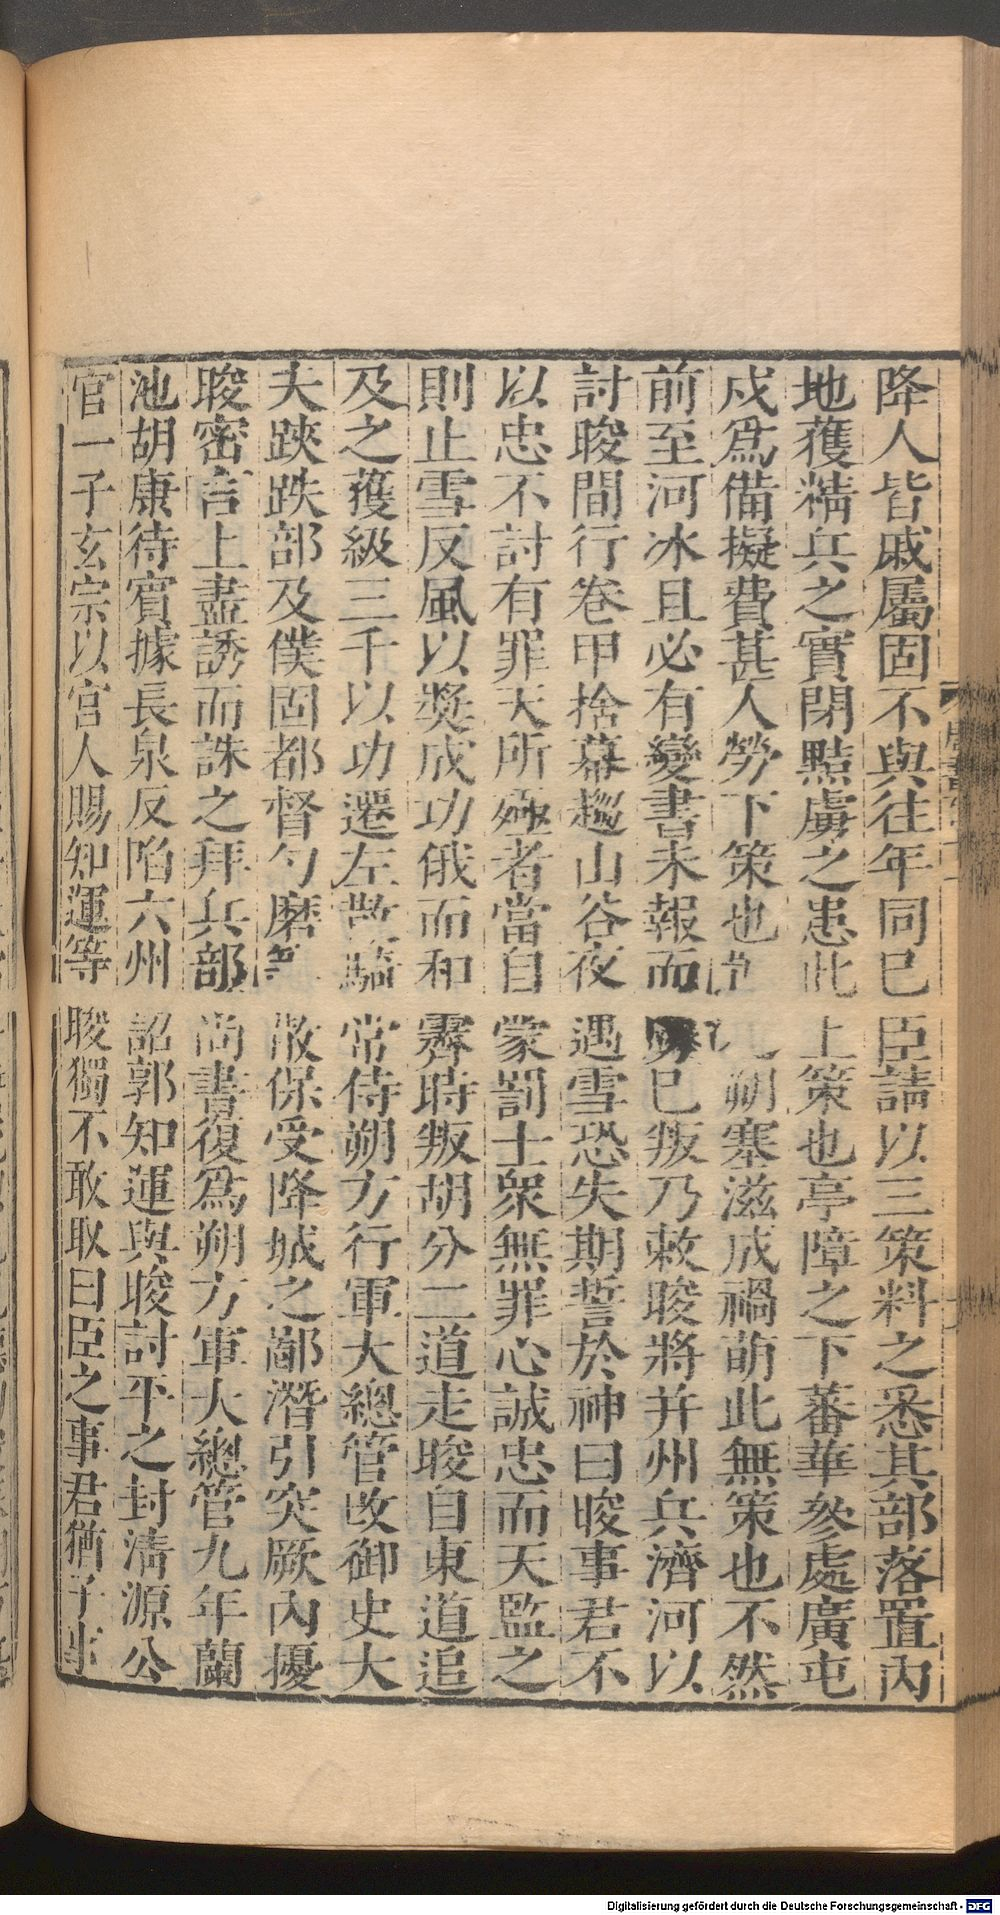 降人皆戚屬固不與往年同巳臣請以三策料之悉其部落置內
地獲精兵之實閉黠虜之患此上策也亭障之下蕃華參處廣屯
戍爲備擬費甚人勞下策也朔塞滋成禍萌此無策也不然
前至河冰且必有變書未報而巳叛乃敕晙將并州兵濟河以
討晙間行卷甲捨幕趨山谷夜遇雪恐失期誓於神曰晙事君不
以忠不討有罪天所殛者當自蒙罰士衆無罪心誠忠而天監之
則止雪反風以獎成功俄而和霽時叛胡分二道走晙自東道追
及之獲級三千以功遷左散騎常侍朔方行軍大總管改御史大
夫𨁂跌部及僕固都督勺磨等散保受降城之鄙潛引突厥內擾
晙密言上盡誘而誅之拜兵部尚書復爲朔方軍大總管九年蘭
池胡康待賓據長泉反陷六州詔郭知運與晙討平之封清源公
官一子玄宗以宮人賜知運等晙獨不敢取曰臣之事君猶子事
Digitalisierung gefördert durch die Deutsche Forschungsgemeinschaft - DFG